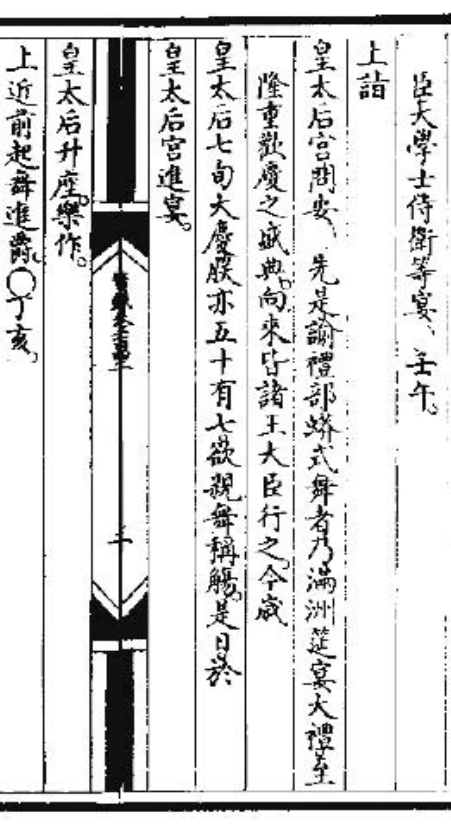 臣大學士侍衛等宴、壬午。
上詣
皇太后宮問安、先是諭禮部蟒式舞者乃滿洲筵宴大禮至
隆重歡慶之盛典。向來皆諸王大臣行之。今歲
皇太后七旬大慶朕亦五十有七欲親舞稱觴。是日於
皇太后宮進宴。
皇太后升座。樂作。
上近前起舞進爵。〇丁亥。